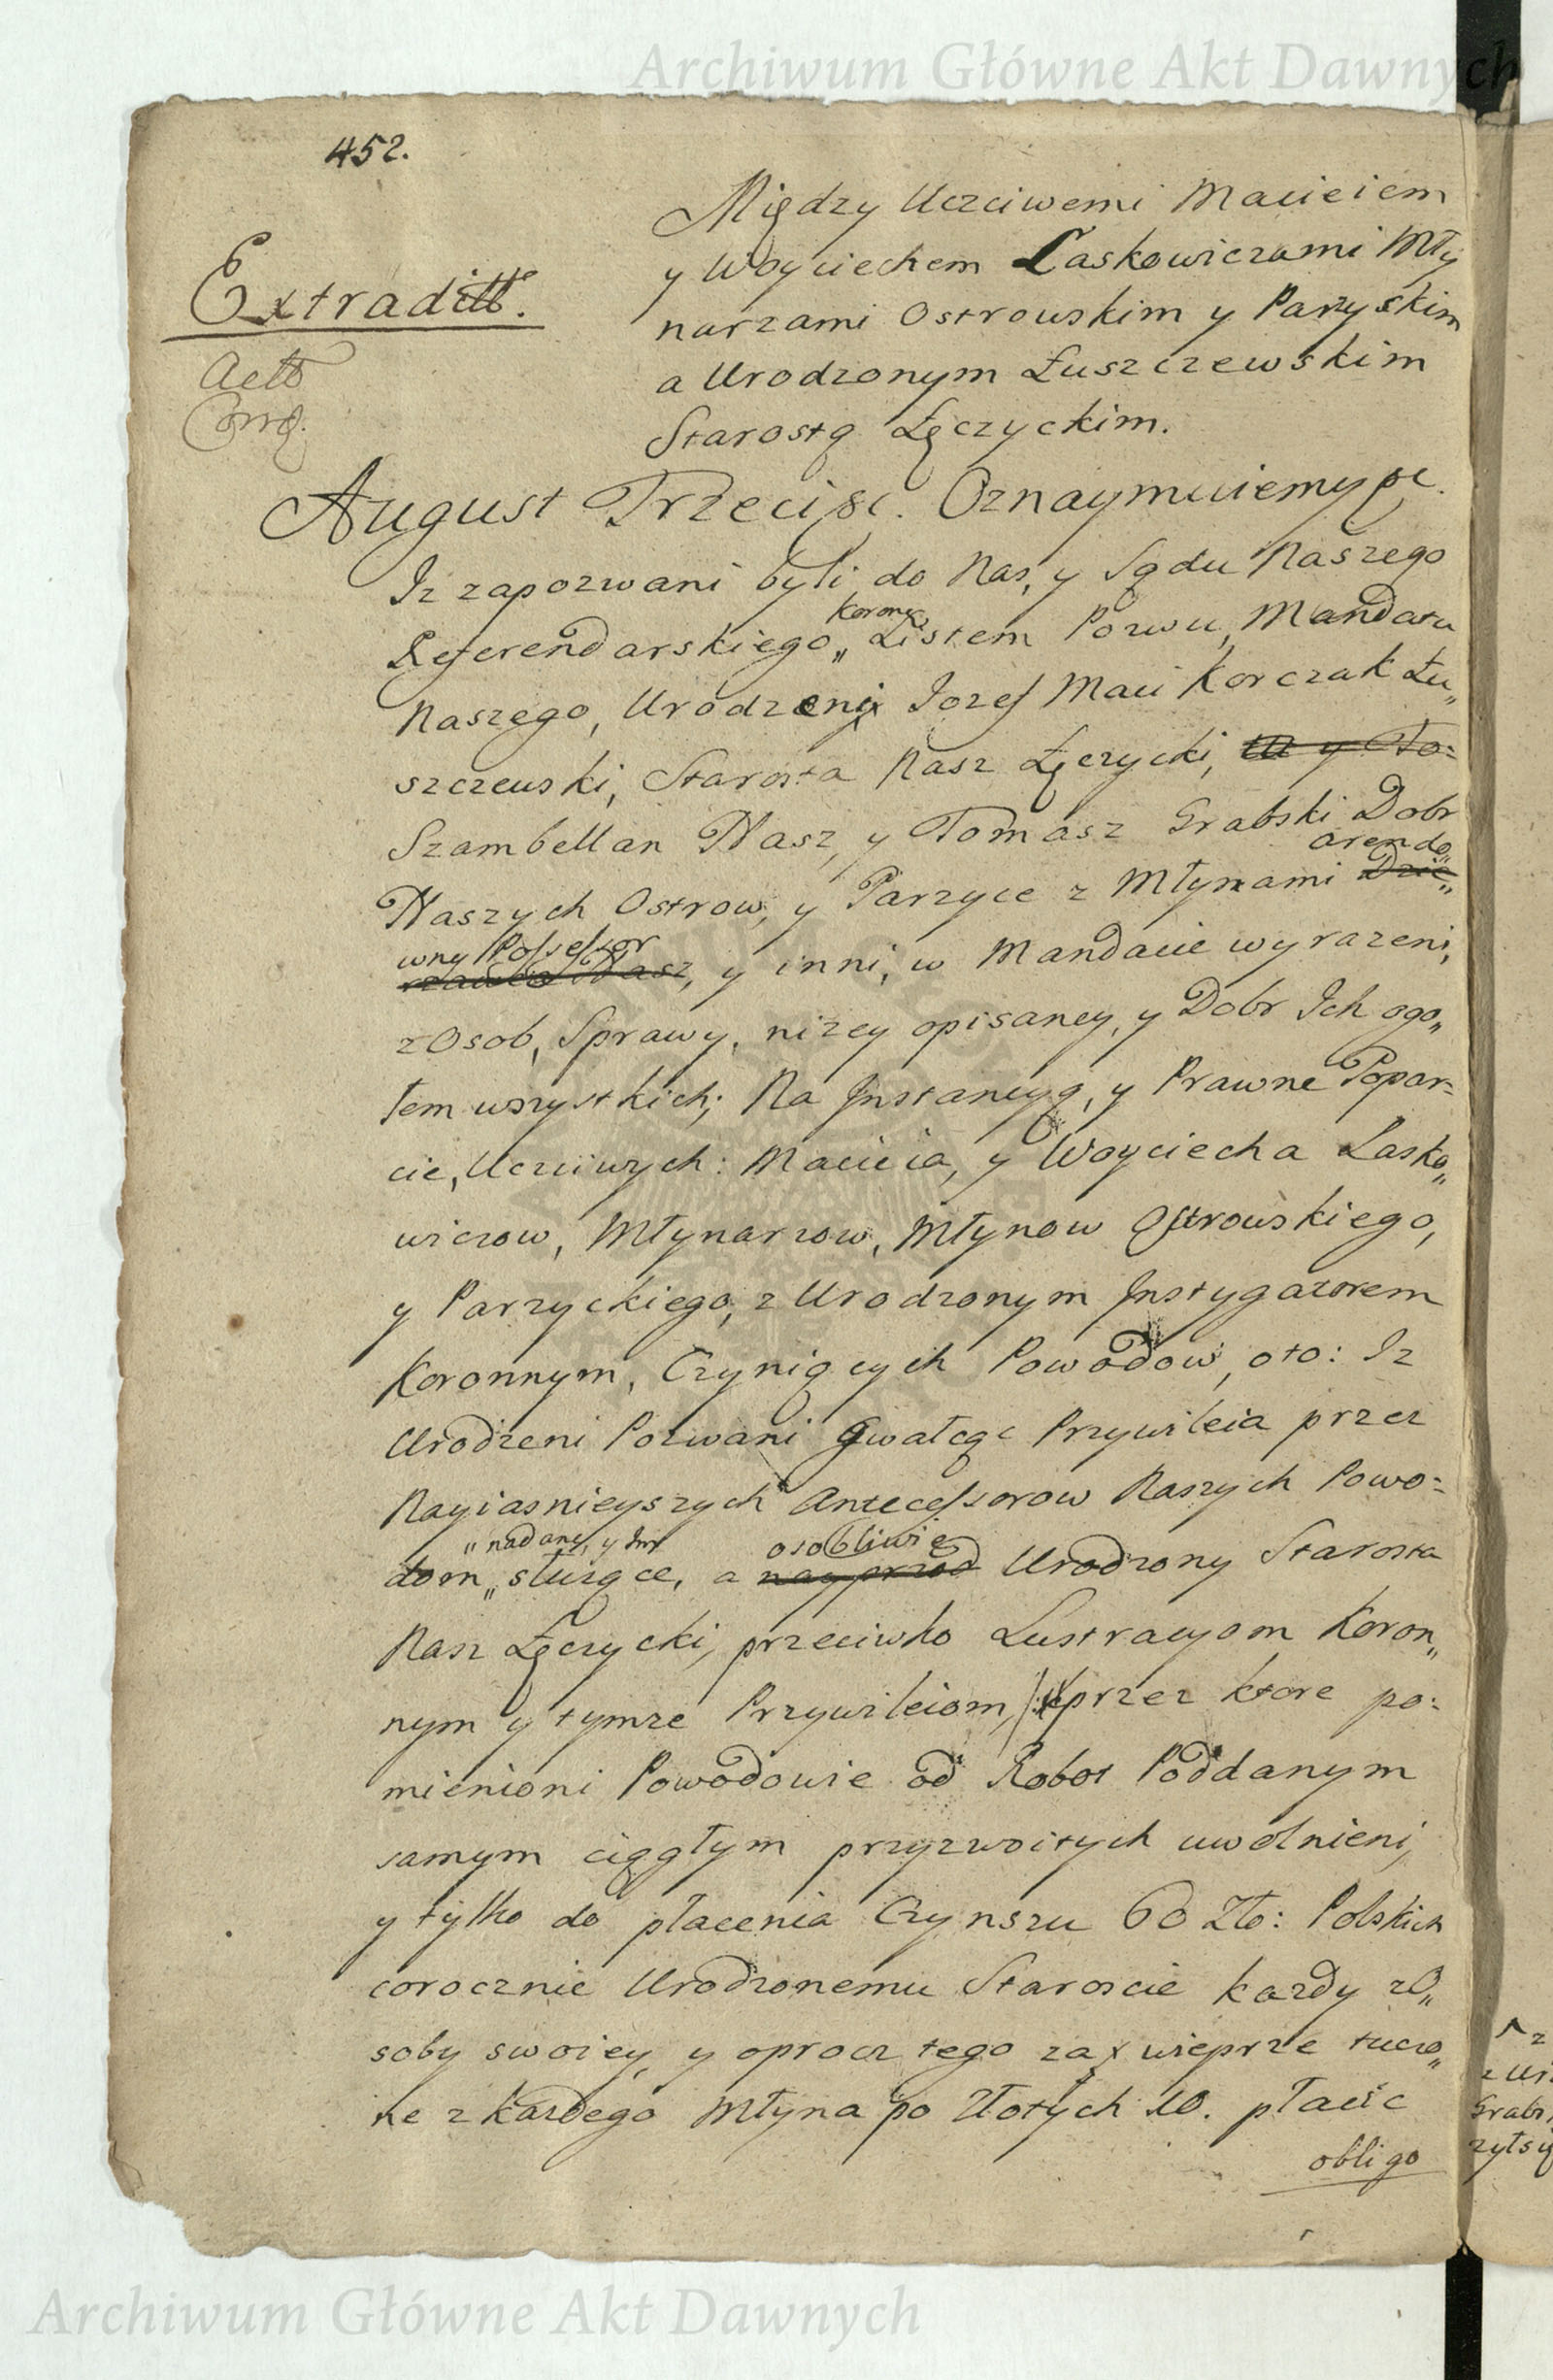 Archiwum Główne Akt Dawnych
452.
Między Uczciwemi Macieiem
y Woyciechem Laskowiczami Mły
narzami Ostrowskim y Parzyskim
a Urodzonym Łuszczewskim
Starostą Łęczyckim.
Extraditt.
August Trzeci &c. Oznaymuiemy &c.
Iz zapozwani byli do Nas, y Sądu Naszego
Koron:
Referendarskiego „ Listem Pozwu, Mandatu
Naszego, Urodzeni Jozef Maci Korczak Łu„
szczewski, Starosta Nasz Łęczycki, y To:
Szambellan Nasz, y Tomasz Grabski Dobr
arendo„
Naszych Ostrow, y Parzyce z Młynami Dzie„
wny Possessor
rzawca Nasz, y inni, w Mandacie wyrazeni,
z Osob, Sprawy, nizey opisaney, y Dobr Ich ogo„
łem wszystkich; Na Instancyą, y Prawne Popar-
cie, Uczciwych: Macieia, y Woyciecha Lasko„
wiczow, Młynarzow, Młynow Ostrowskiego,
y Parzyckiego, z Urodzonym Instygatorem
Koronnym, Czyniących Powodow, oto: Iz
Urodzeni Pozwani gwałcąc Przywileia przez
Nayiasnieyszych Antecessorow Naszych Powo=
„ nadane, y Im osobliwie
dom „ słuzące, a nayprzod Urodzony Starosta
Nasz Łęczycki, przeciwko Lustracyom Koron„
nym y tymze Przywileiom, przez ktore po:
mienioni Powodowie od Robot Poddanym
samym ciągłym przyzwoitych uwolnieni,
y tylko do płacenia Czynszu 60 Zło: Polskich
corocznie Urodzonemu Staroscie kazdy z O„
soby swoiey, y oprocz tego za wieprze tuczo„
ne z kazdego Młyna po Złotych 10. płacic
obligo
Grabs
zyłsy
Archiwum Główne Akt Dawnych